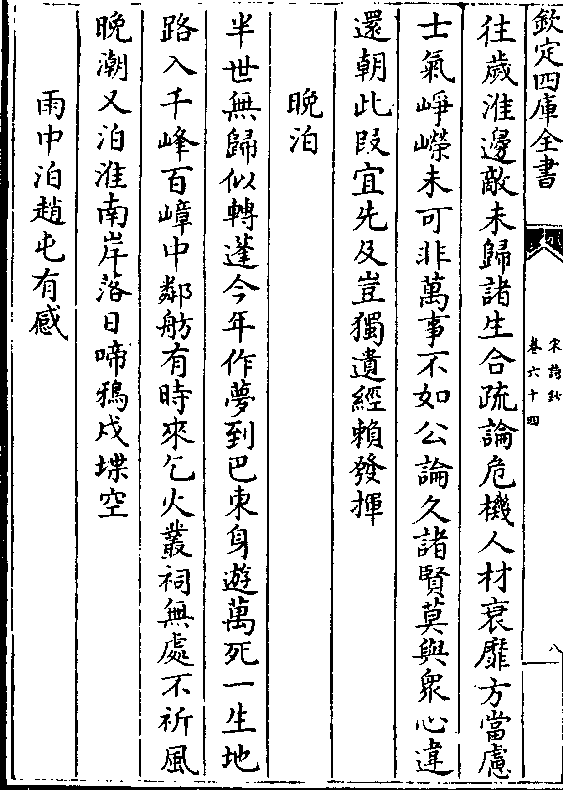 欽定四庫全書
宋詩鈔
卷六十四
八
往歲淮邊敵未歸諸生合疏論危機人材衰靡方當慮
士氣崢嶸未可非萬事不如公論久諸賢莫與衆心違
還朝此段宜先及豈獨遺經賴發揮
晚泊
半世無歸似轉蓬今年作夢到巴東身遊萬死一生地
路入千峰百嶂中鄰舫有時來乞火叢祠無處不祈風
晚潮又泊淮南岸落日啼鴉戍堞空
雨中泊趙屯有感